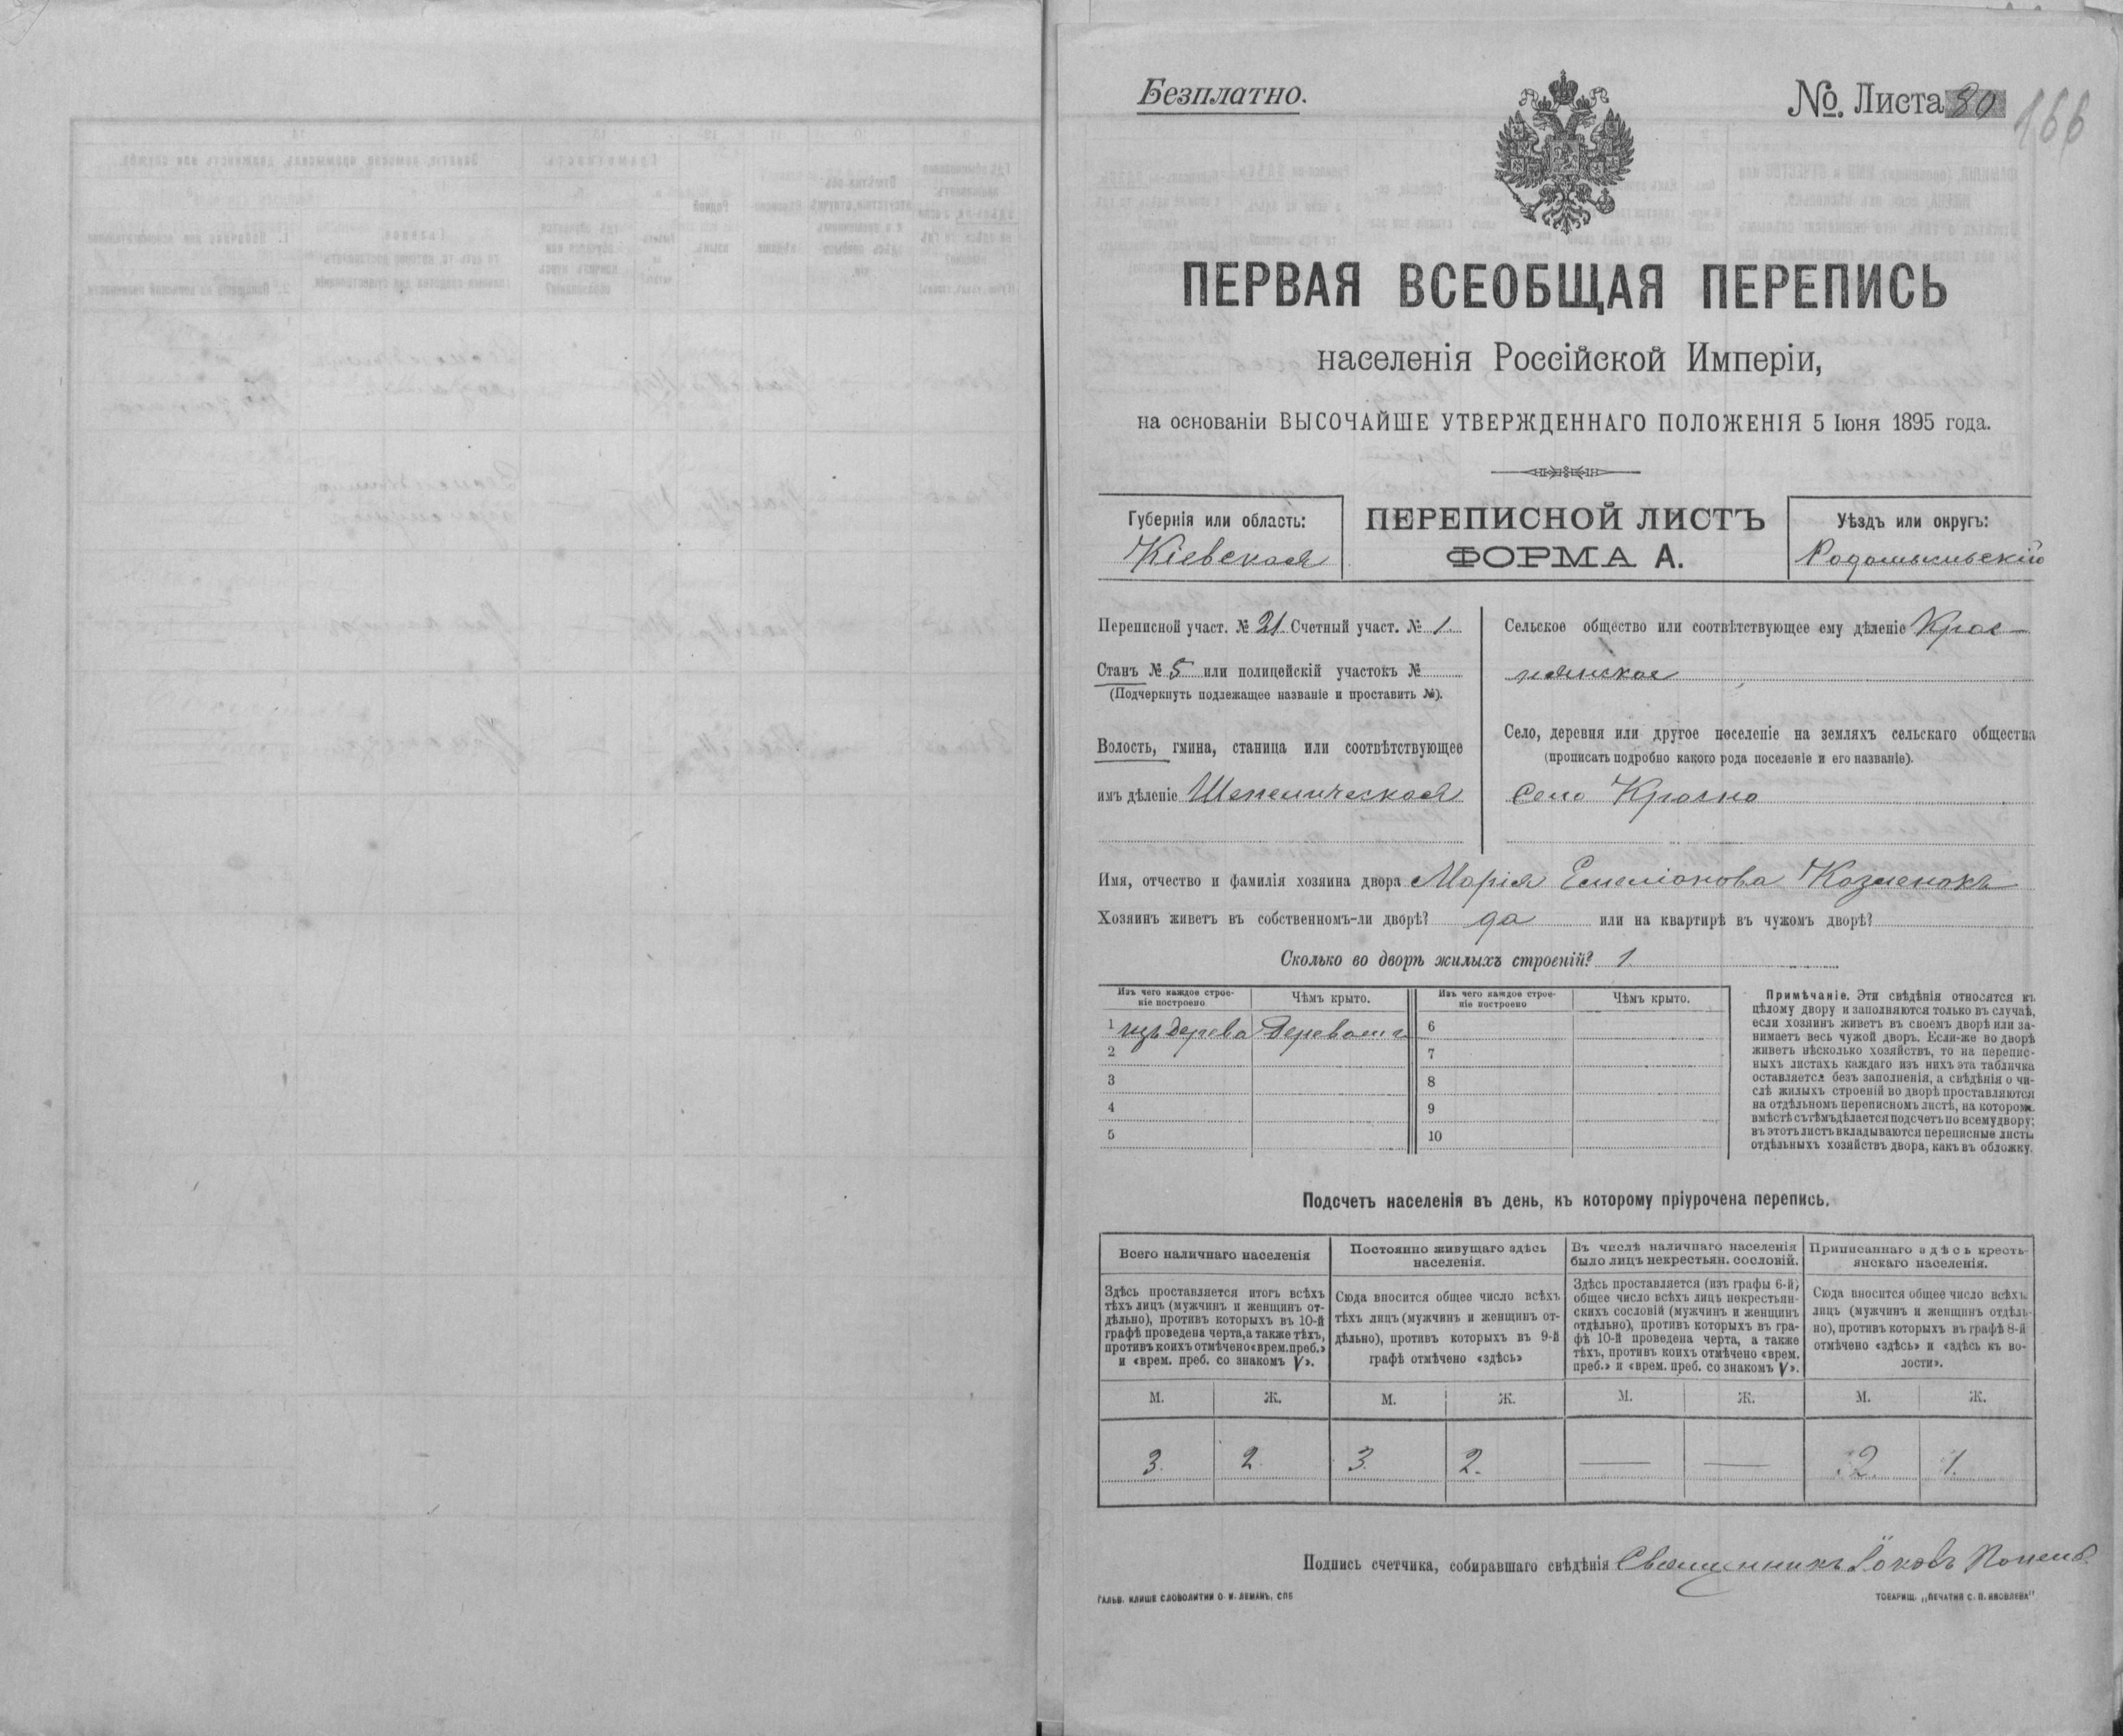 Безплатно.
№. Листа 80
166
ПЕРВАЯ ВСЕОБЩАЯ ПЕРЕПИСЬ
населенія Россійской Имперіи,
на основаніи ВЫСОЧАЙШЕ УТВЕРЖДЕННАГО ПОЛОЖЕНІЯ 5 Іюня 1895 года.
Губернія или область:
Кіевская
ПЕРЕПИСНОЙ ЛИСТЪ
ФОРМА А.
Уѣздъ или округъ:
Радомысльскій
Переписной участ. № 21 Счетный участ. № 1.
Станъ № 5 или полицейскій участокъ №
(Подчеркнуть подлежащее названіе и проставить №).
Волость, гмина, станица или соотвѣтствующее
имъ дѣленіе Шепеличская
Сельское общество или соотвѣтствующее ему дѣленіе Крас-
нянское
Село, деревня или другое поселеніе на земляхъ сельскаго общества
(прописать подробно какого рода поселеніе и его названіе).
Село Красно
Имя, отчество и фамилія хозяина двора Марія Емеліонова Козленокъ
Хозяинъ живетъ въ собственномъ-ли дворѣ? да или на квартирѣ въ чужомъ дворѣ?
Сколько во дворѣ жилыхъ строеній? 1
Изъ чего каждое строе-
ніе построено
Чѣмъ крыто.
Изъ чего каждое строе-
ніе построено
Чѣмъ крыто.
1 изъ дерева Деревомъ
2
3
4
5
6
7
8
9
10
Примѣчаніе. Эти свѣдѣнія относятся къ
цѣлому двору и заполняются только въ случаѣ,
если хозяинъ живетъ въ своемъ дворѣ или за-
нимаетъ весь чужой дворъ. Если-же во дворѣ
живетъ нѣсколько хозяйствъ, то на перепис-
ныхъ листахъ каждаго изъ нихъ эта табличка
оставляется безъ заполненія, а свѣдѣнія о чи-
слѣ жилыхъ строеній во дворѣ проставляются
на отдѣльномъ переписномъ листѣ, на которомъ
вмѣстѣ съ тѣмъ дѣлается подсчетъ по всему двору;
въ этотъ листъ вкладываются переписные листы
отдѣльныхъ хозяйствъ двора, какъ въ обложку.
Подсчетъ населенія въ день, къ которому пріурочена перепись.
Всего наличнаго населенія
Здѣсь проставляется итогъ всѣхъ
тѣхъ лицъ (мужчинъ и женщинъ от-
дѣльно), противъ которыхъ въ 10-й
графѣ проведена черта, а также тѣхъ,
противъ коихъ отмѣчено «врем. преб.»
и «врем. преб. со знакомъ V».
Постоянно живущаго здѣсь
населенія.
Сюда вносится общее число всѣхъ
тѣхъ лицъ (мужчинъ и женщинъ от-
дѣльно), противъ которыхъ въ 9-й
графѣ отмѣчено «здѣсь»
Въ числѣ наличнаго населенія
было лицъ некрестьян. сословій.
Здѣсь проставляется (изъ графы 6-й)
общее число всѣхъ лицъ некрестьян-
скихъ сословій (мужчинъ и женщинъ
отдѣльно), противъ которыхъ въ гра-
фѣ 10-й проведена черта, а также
тѣхъ, противъ коихъ отмѣчено «врем.
преб.» и «врем. преб. со знакомъ V».
Приписаннаго здѣсь кресть-
янскаго населенія.
Сюда вносится общее число всѣхъ
лицъ (мужчинъ и женщинъ отдѣль-
но), противъ которыхъ въ графѣ 8-й
отмѣчено «здѣсь» и «здѣсь къ во-
лости».
М. Ж. М. Ж. М. Ж. М. Ж.
3. 2. 3. 2. — — 2. 1.
Подпись счетчика, собиравшаго свѣдѣнія Священникъ Іаковъ
ГАЛЬВ. КЛИШЕ СЛОВОЛИТНИ О. И. ЛЕМАНЪ, СПБ
ТОВАРИЩ. „ПЕЧАТНЯ С. П. ЯКОВЛЕВА"